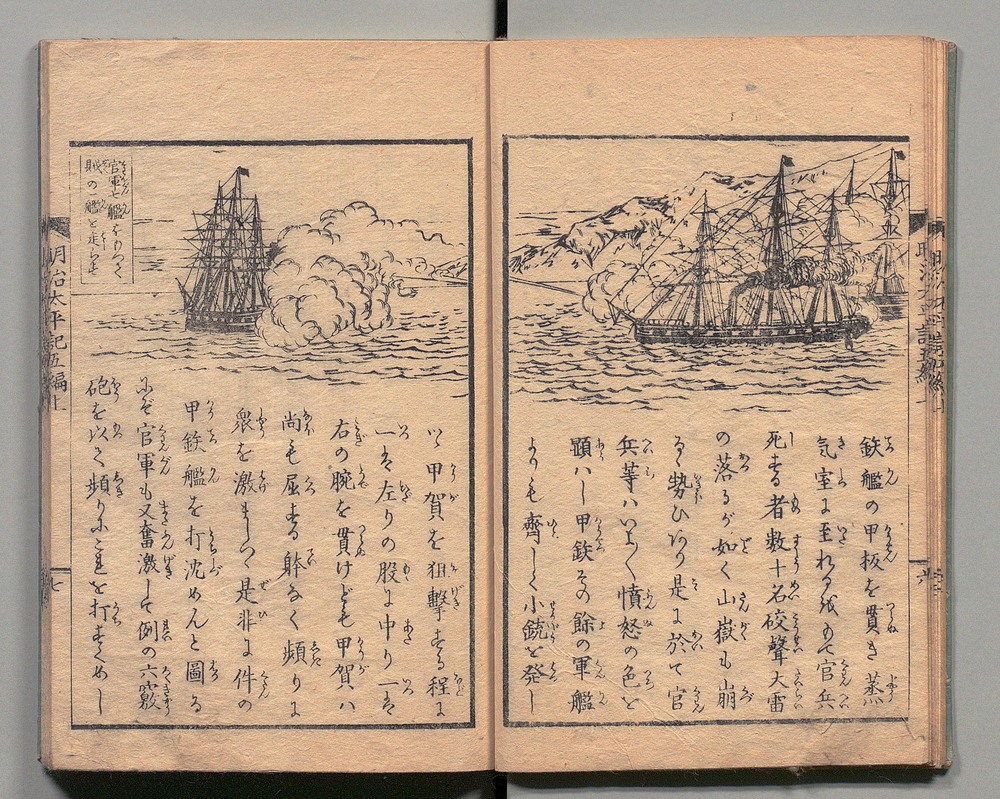 鉄艦の甲板を貫き蒸
気室に至れるを以て官兵
死する者数十名砲聲大雷
の落るが如く山嶽も崩
るゝ勢ひなり是に於て官
兵等ハいよ〳〵憤怒の色を
顕ハし甲鉄その餘の軍艦
よりも齊しく小銃を発し
官軍七艦をもつて
賊の一艦を走らす
つゝ甲賀を狙撃する程に
一ツは左りの股に中り一ツは
右の腕を貫けども甲賀ハ
尚も屈する躰なく頻りに
衆を激まし是非に件の
甲鉄艦を打沈めんと圖る
にぞ官軍も又奮激して例の六竅
砲を以て頻りにこれを打すくめし
明治太平記五編上
七